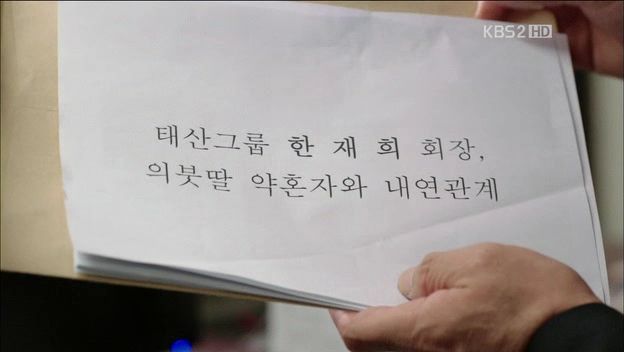 KBS2 HD
태산그룹 한 재 희 회장,
의붓딸 약혼자와 내연관계